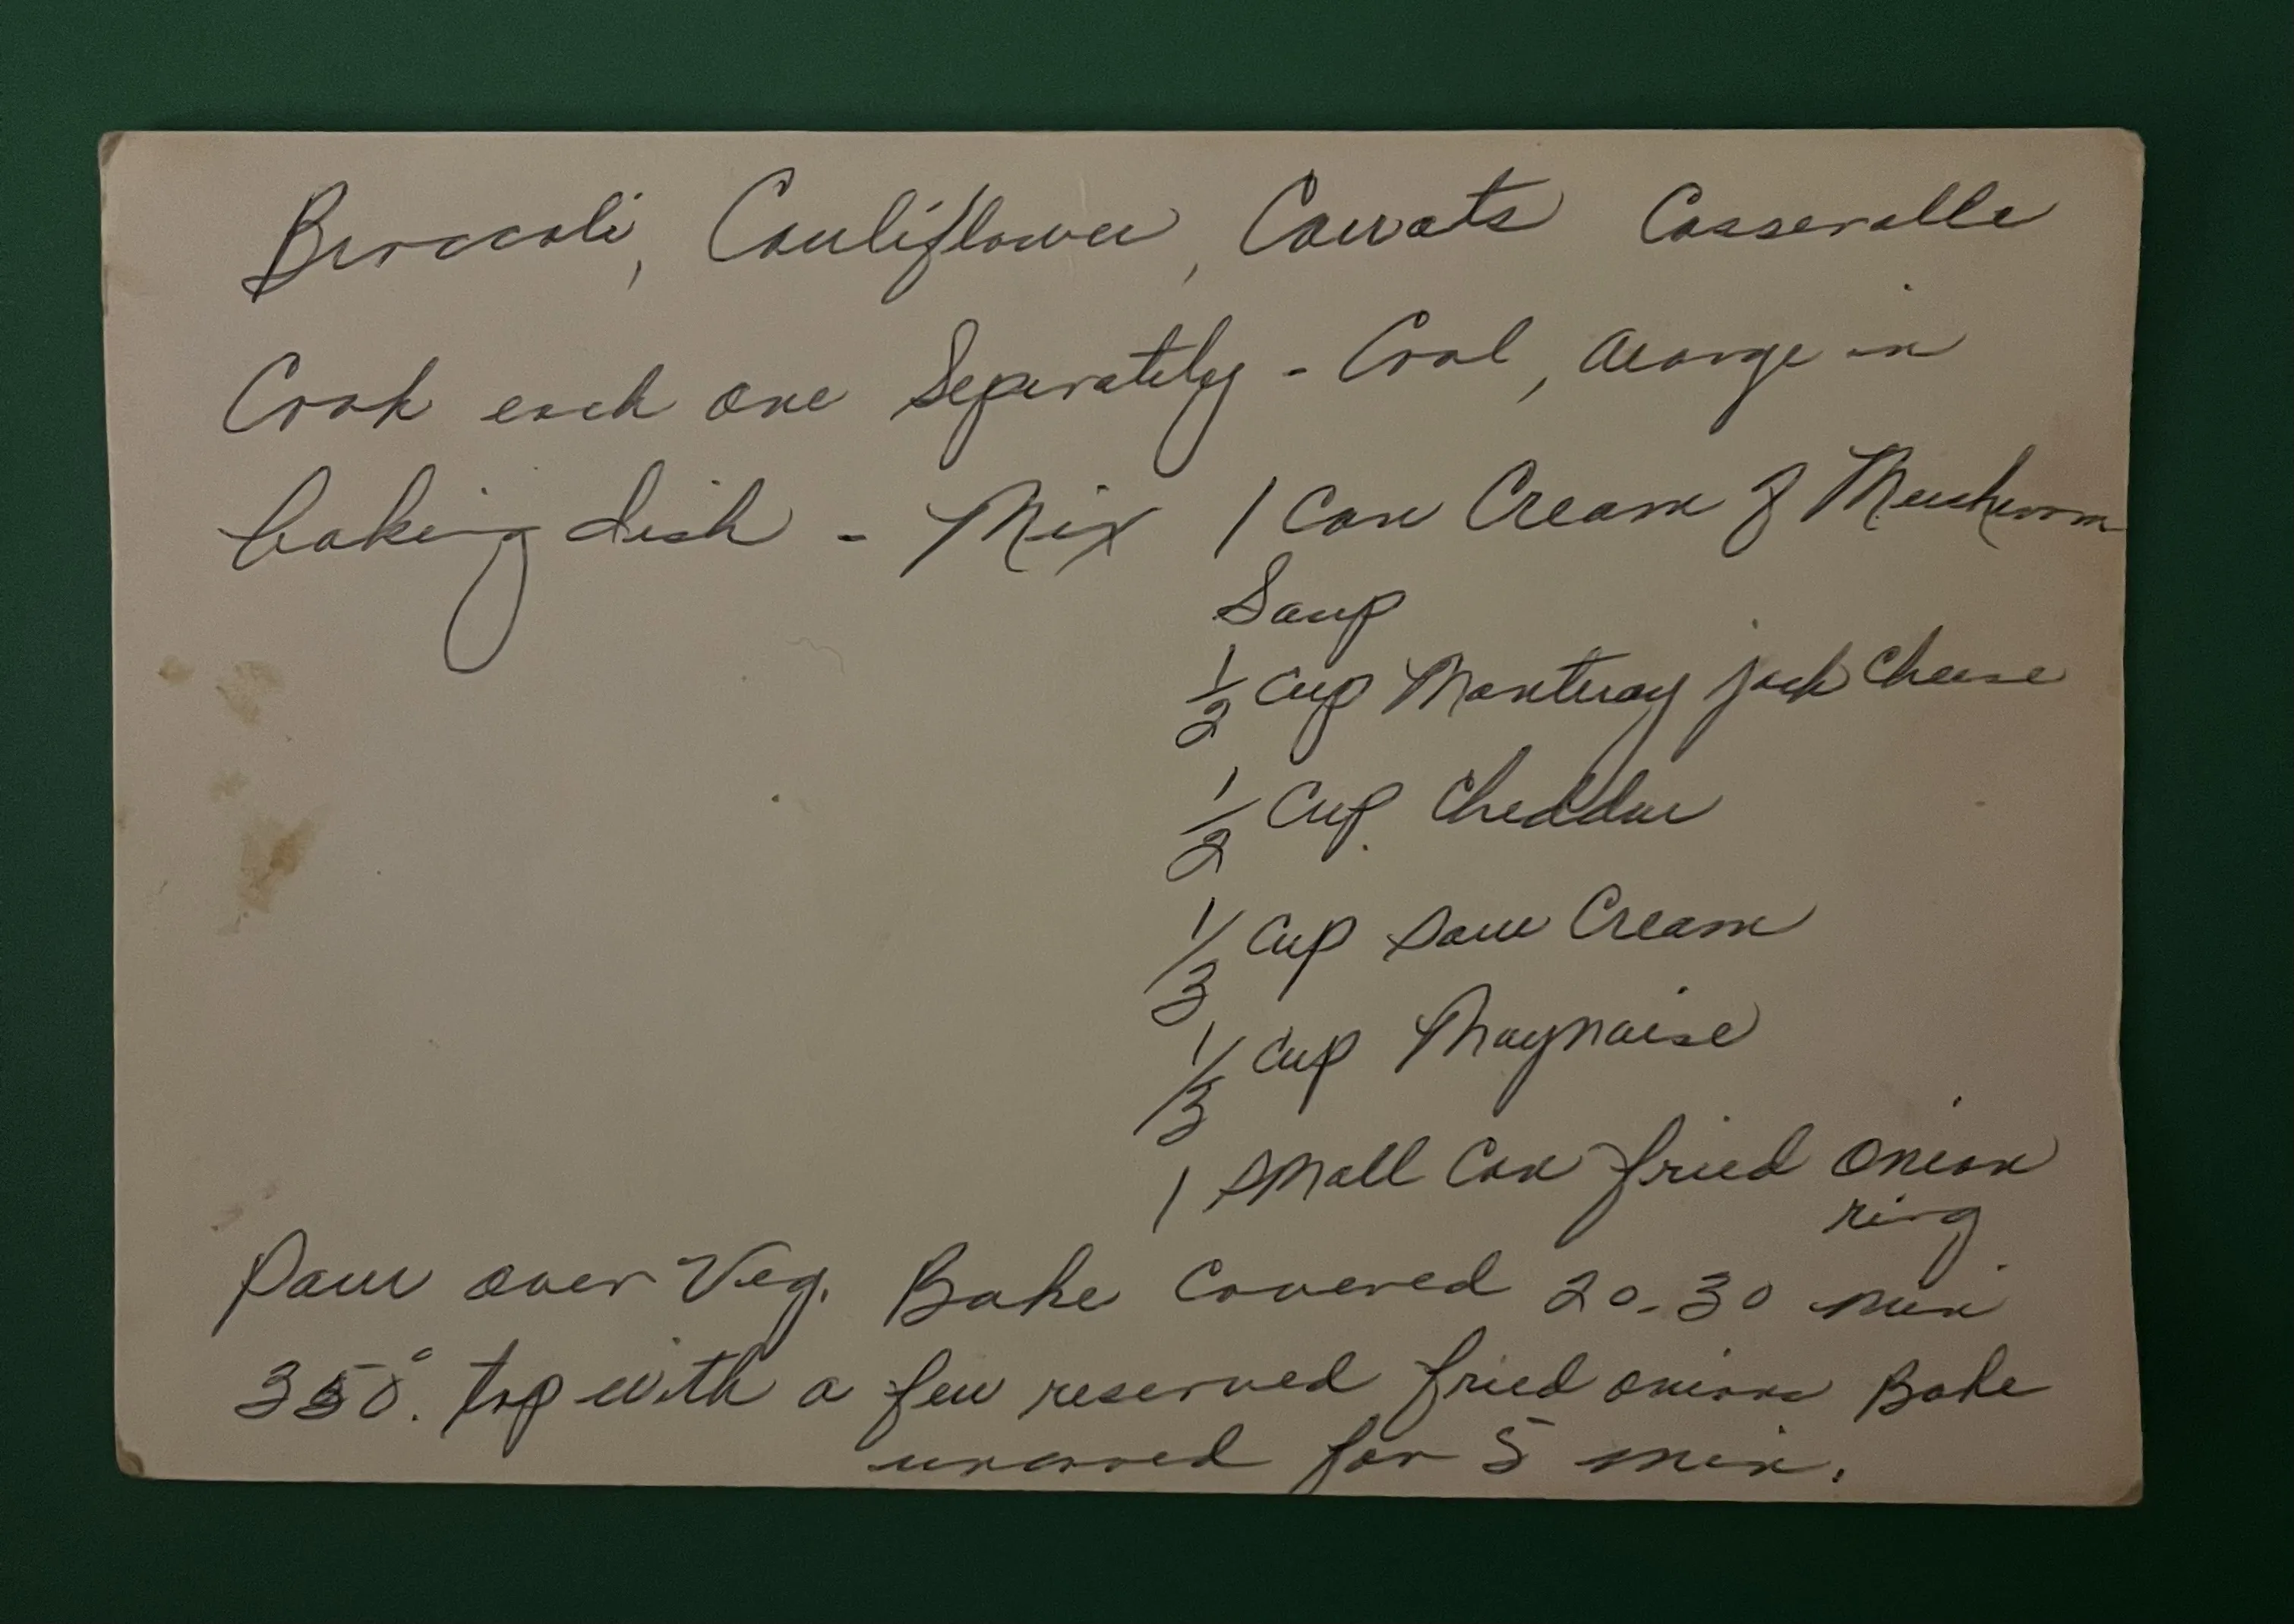 Broccoli, Cauliflower, Carrots Casserolle
Cook each one Seperately - Cool, arange in
baking dish - Mix 1 Can Cream of Mushroom
Soup
1/2 Cup Monteray jack Cheese
1/2 Cup Cheddar
1/3 Cup Sour Cream
1/3 Cup Maynaise
1 Small Can fried Onion
ring
Pour over Veg. Bake Covered 20-30 min
350°. top with a few reserved fried onions Bake
for 5 min.